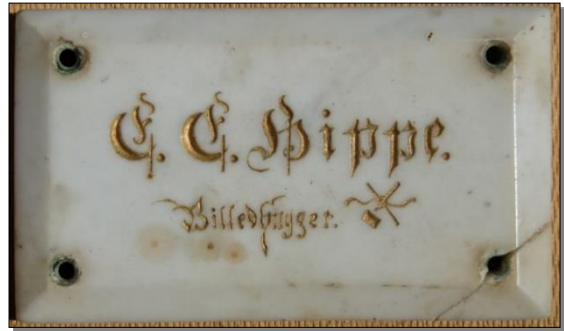 C. C. Pippe.
Billedhugger.